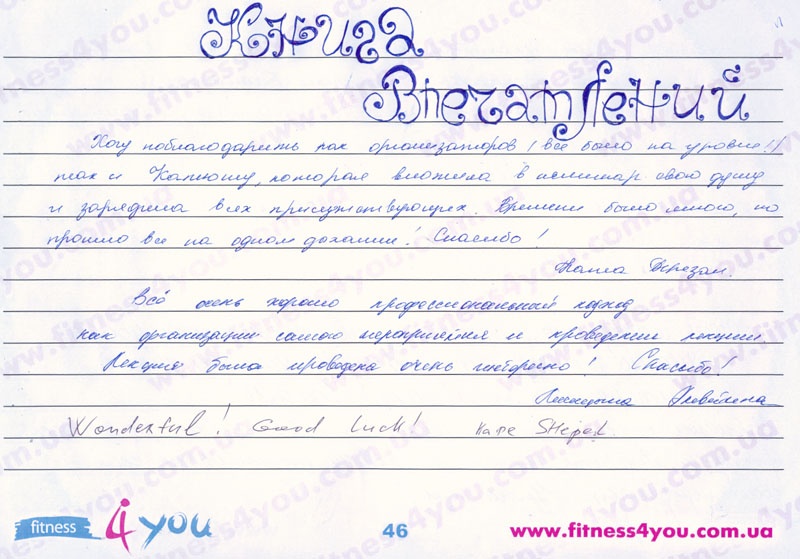 Книга
Впечатлений
Хочу поблагодарить как организаторов (все было на уровне!)
так и Катюшу, которая вложила в семинар свою душу
и зарядила всех присутствующих. Времени было много, но
прошло все на одном дыхании! Спасибо!
Всё очень хорошо профессиональный подход
как организации самого мероприятия и проведении лекции
Лекция была проведена очень интересно! Спасибо!
Wonderful! Good Luck! Kate
fitness 4 you
46
www.fitness4you.com.ua